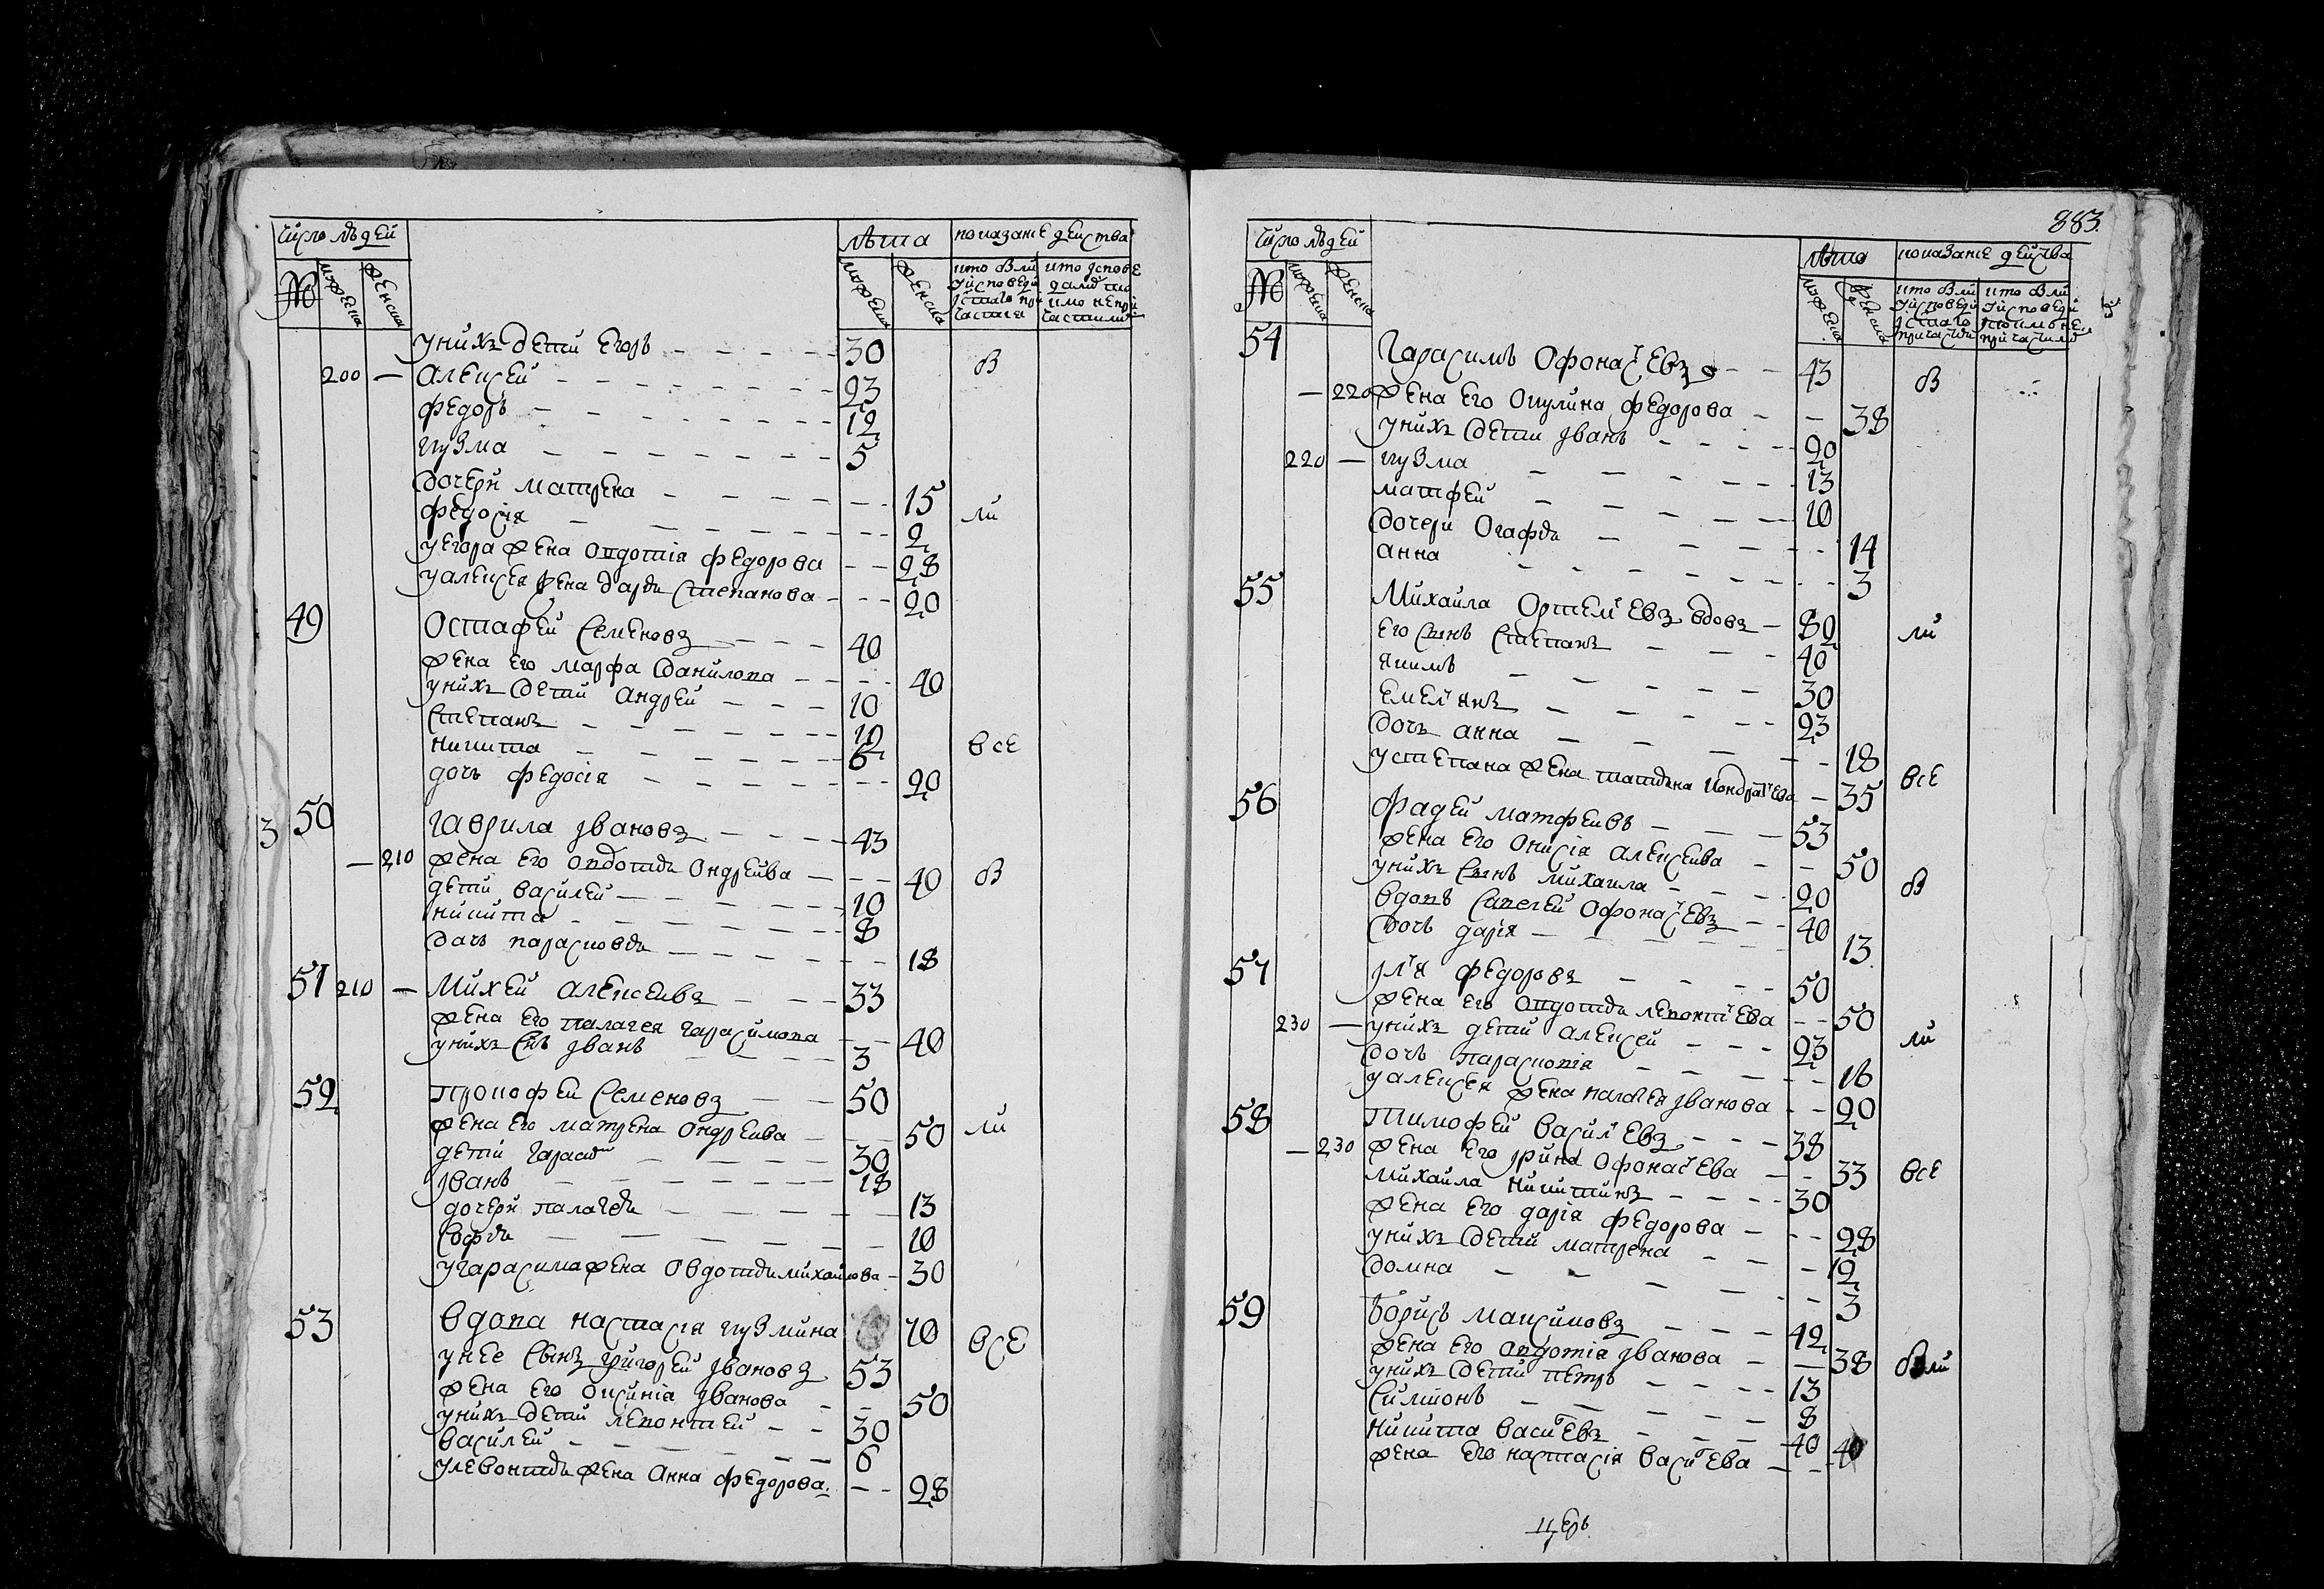 число людей
лѣта
показание действа
№
мужеска
женска
мужеска
женска
кто были
у исповеди
у святаго при
частия
кто испове
дались то
кмо непри
частилис
у них дети Егоръ 30
В
200 Алексей 23
федоръ 12
кузма 5
дочери матрена 15
ли
федосия 2
у егора жена овдотiа федорова 28
у алексея жена дарья степанова 20
49 Остафей Семеновъ 40
жена его марфа данилова 40
у них дети андрей 10
степанъ 10
никита 6
все
дочь федосiя 20
50 гаврила Ивановъ 43
3
210 жена его овдотья ондреива 40
В
дети василей 10
никита 8
дочь парасковья 18
51 210 Михей алексеивъ 33
жена его палагея гарасимова 40
у них снъ Иванъ 3
52 прокофей семеновъ 50
жена его матрена ондреива 50
ли
дети гарасим 30
Иванъ 18
дочери палагея 13
софья 10
у гарасима жена овдотья михайлова 30
53 вдова настасiя кузмина 70
все
у нее сынъ григорей Ивановъ 53
жена его оксинiа Иванова 50
у них дети левонтей 30
василей 6
у левонтья жена анна федорова 28
883
число людей
лѣта
показание действа
№
мужеска
женска
мужеска
женска
кто были
у исповеди
у святаго
причастия
кто были
у исповеди
54 гарасимъ офонасевъ 43
В
220 жена его окулина федорова 38
у них дети Иванъ 20
220 кузма 13
матфей 10
дочери огафья 14
анна 3
55 Михайла ортемевъ вдовъ 80
ли
его сынъ степанъ 40
якимъ 30
емелянъ 23
дочь анна 18
у степана жена татьяна кондратева 35
все
56 фадей матфеивъ 53
жена его онисiя алексеива 50
у них сынъ михаила 20
В
вдовъ савелей офонасевъ 40
дочь дарiя 13
57 Илья федоровъ 50
жена его овдотья левонтева 50
230 у них дети алексей 23
ли
дочь парасковiя 16
у алексея жена палагея Иванова 20
58 тимофей василевъ 38
230 жена его Ирина офонасева 33
все
михайла никитинъ 30
жена его дарiя федорова 28
у них дети матрена 12
домна 3
59 борисъ максимовъ 42
жена его овдотiа Иванова 38
вли
у них дети петръ 13
силионъ 8
никита васиевъ 40
жена его настасiя васиева 40